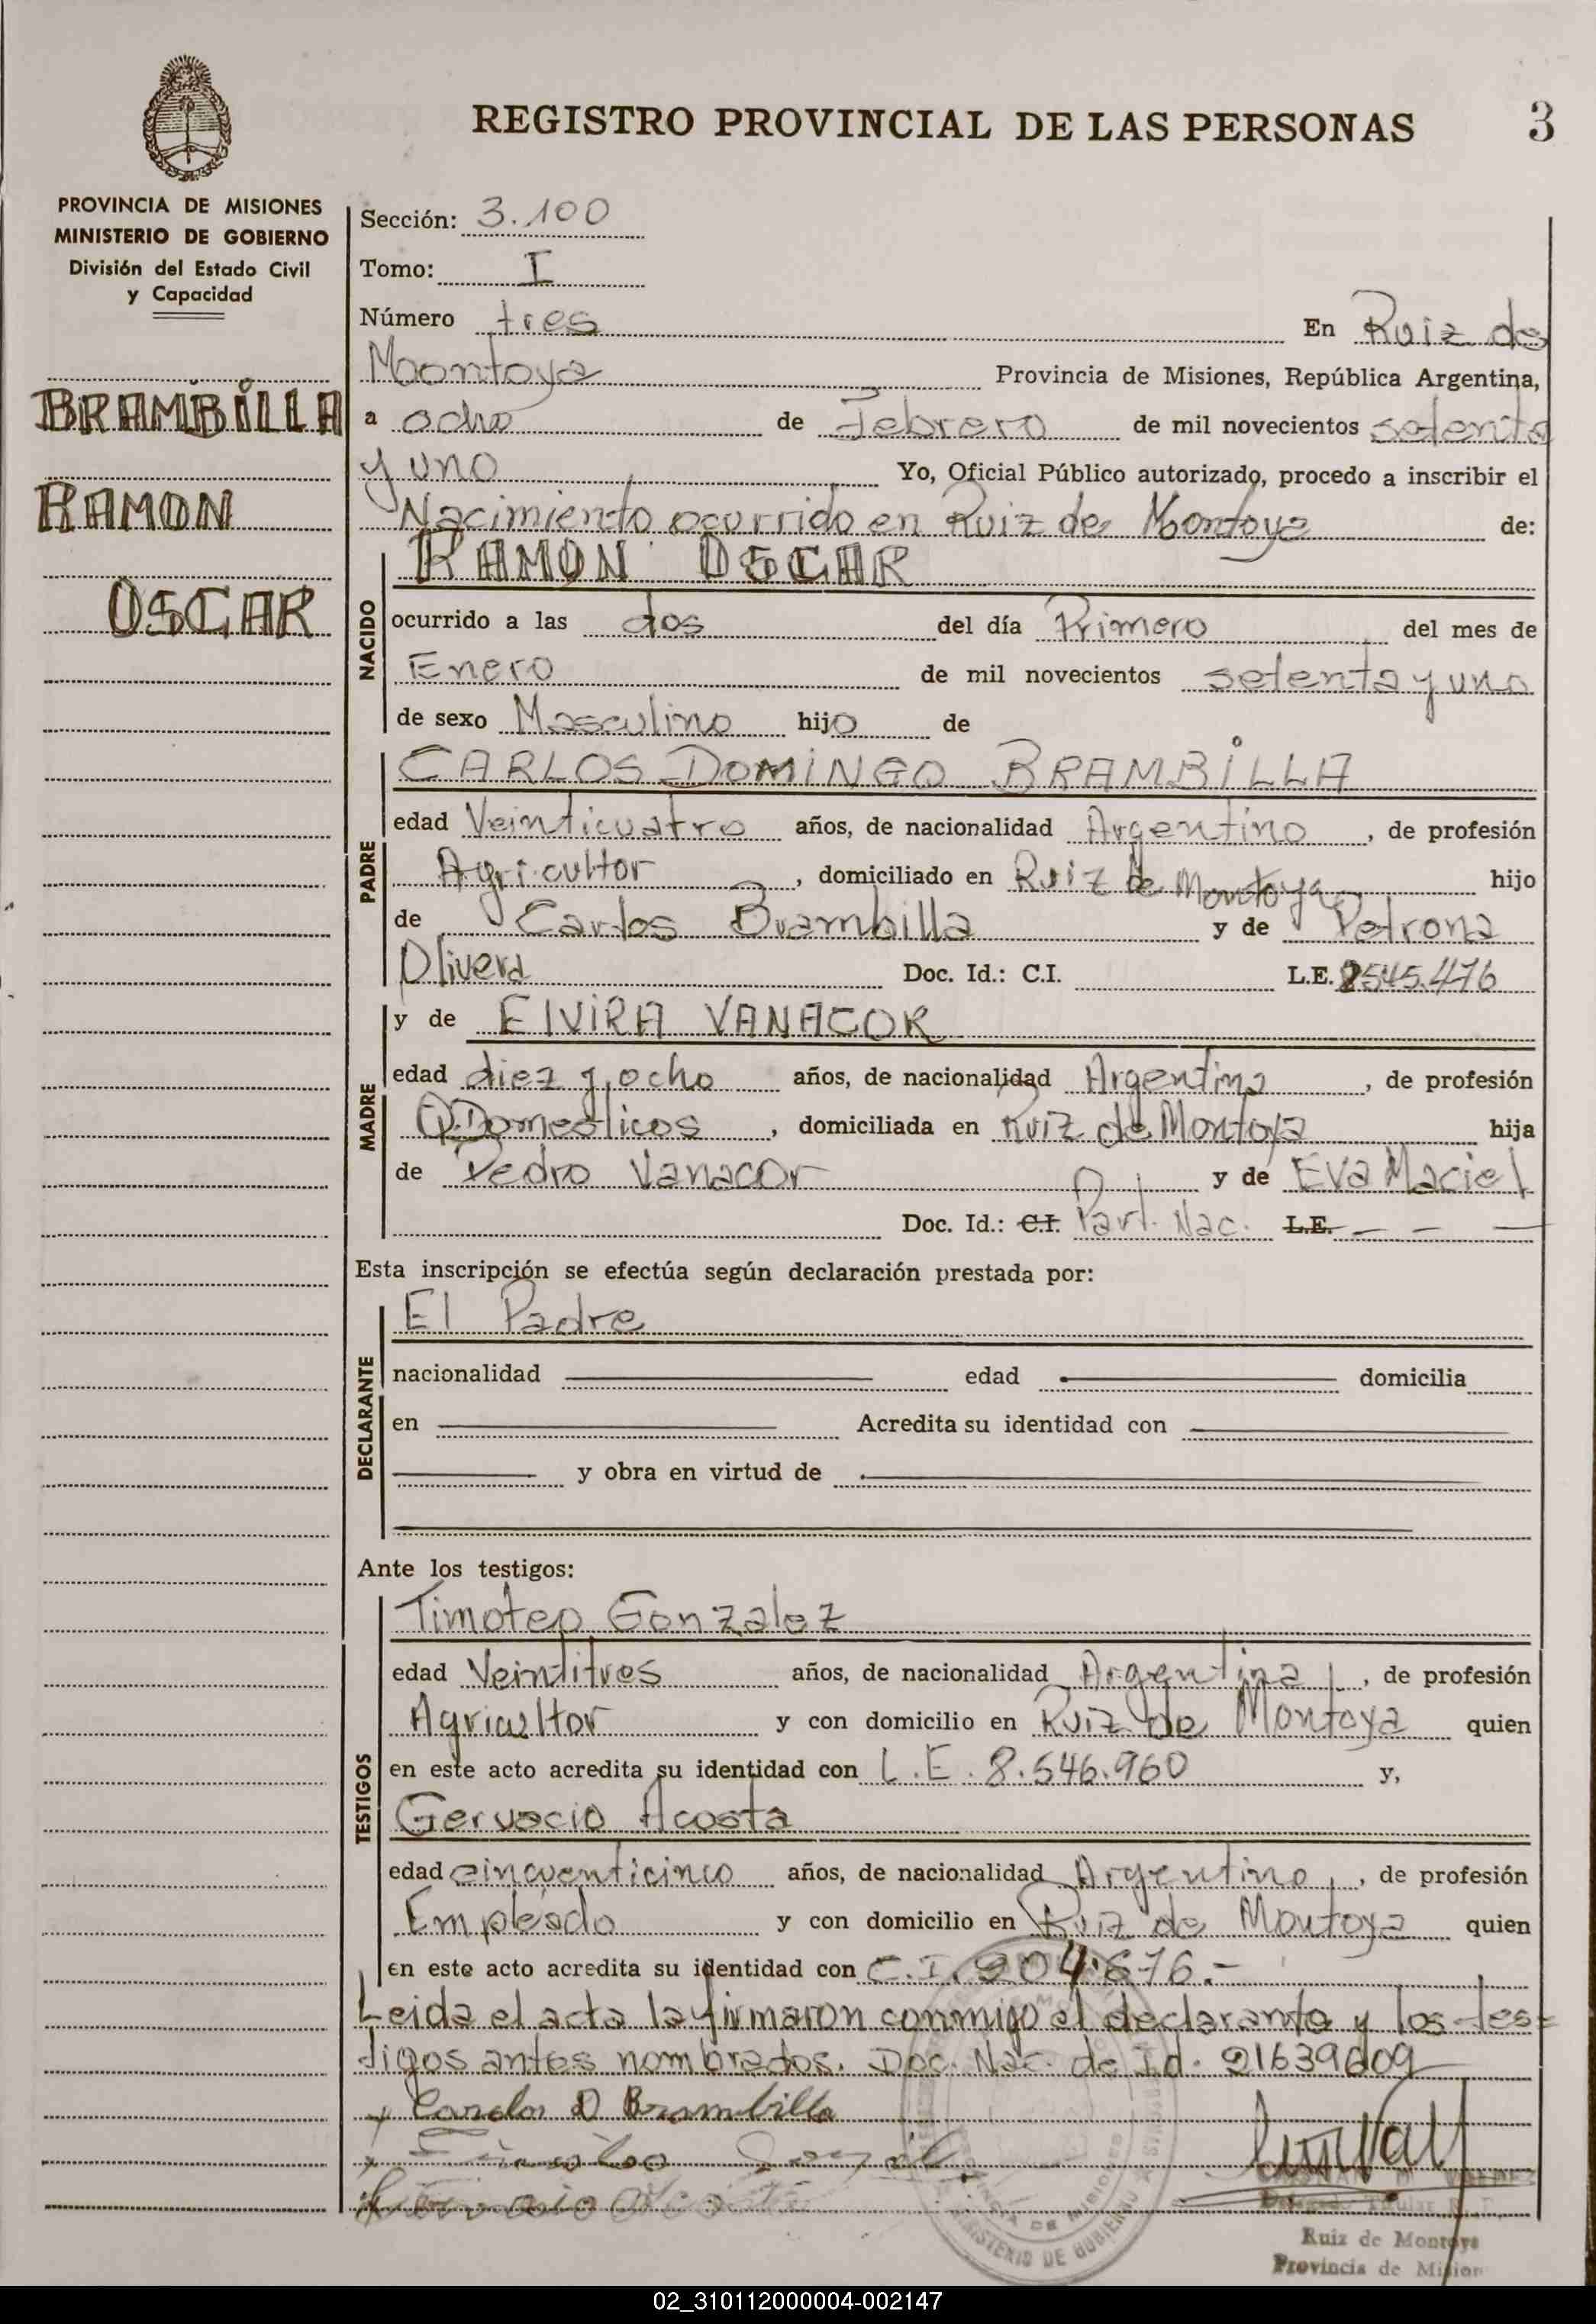 REGISTRO PROVINCIAL DE LAS PERSONAS 3
PROVINCIA DE MISIONES
MINISTERIO DE GOBIERNO
División del Estado Civil
y Capacidad
BRAMBILLA
RAMON
OSCAR
Sección: 3.100
Tomo: I
Número tres En Ruiz de
Montoya Provincia de Misiones, República Argentina,
a ocho de Febrero de mil novecientos setenta
y uno Yo, Oficial Público autorizado, procedo a inscribir el
Nacimiento ocurrido en Ruiz de Montoya de:
NACIDO
RAMON OSCAR
ocurrido a las dos del día Primero del mes de
Enero de mil novecientos setenta y uno
de sexo Masculino hijo de
PADRE
CARLOS DOMINGO BRAMBILLA
edad Veinticuatro años, de nacionalidad Argentino, de profesión
Agricultor, domiciliado en Ruiz de Montoya hijo
de Carlos Brambilla y de Petrona
Olivera Doc. Id.: C.I. L.E. 8545.476
MADRE
y de ElVIRA VANACOR
edad diez y ocho años, de nacionalidad Argentina, de profesión
Q.Domesticos, domiciliada en Ruiz de Montoya hija
de Pedro Vanacor y de Eva Maciel
Doc. Id.: C.I. Part. Nac. L.E. — — —
Esta inscripción se efectúa según declaración prestada por:
DECLARANTE
El Padre
nacionalidad edad domicilia
en Acredita su identidad con
y obra en virtud de
Ante los testigos:
TESTIGOS
Timoteo Gonzalez
edad Veintitres años, de nacionalidad Argentina, de profesión
Agricultor y con domicilio en Ruiz de Montoya quien
en este acto acredita su identidad con L.E. 8.546.960 y,
Gervacio Acosta
edad cincuenticinco años, de nacionalidad Argentino, de profesión
Empleado y con domicilio en Ruiz de Montoya quien
en este acto acredita su identidad con C.I. 904.676.-
Leida el acta la firmaron conmigo el declarante y los tes=
tigos antes nombrados. Doc. Nac. de Id. 21639609
Carlos D Brambilla
Ruiz de Montoya
Provincia de Mision
MINISTERIO DE GOBIERNO
02_310112000004-002147